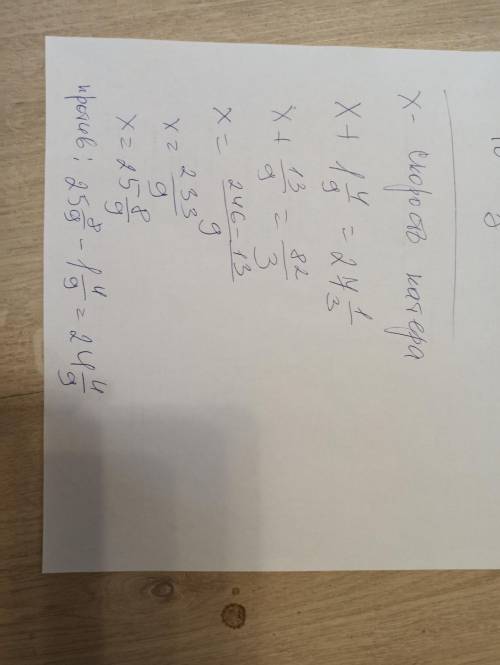 x - скорость катера
x + 1 4/9 = 24 1/3
x + 13/9 = 82/3
x = 246-13/9
x = 233/9
x = 25 8/9
против: 25 8/9 - 1 4/9 = 24 4/9